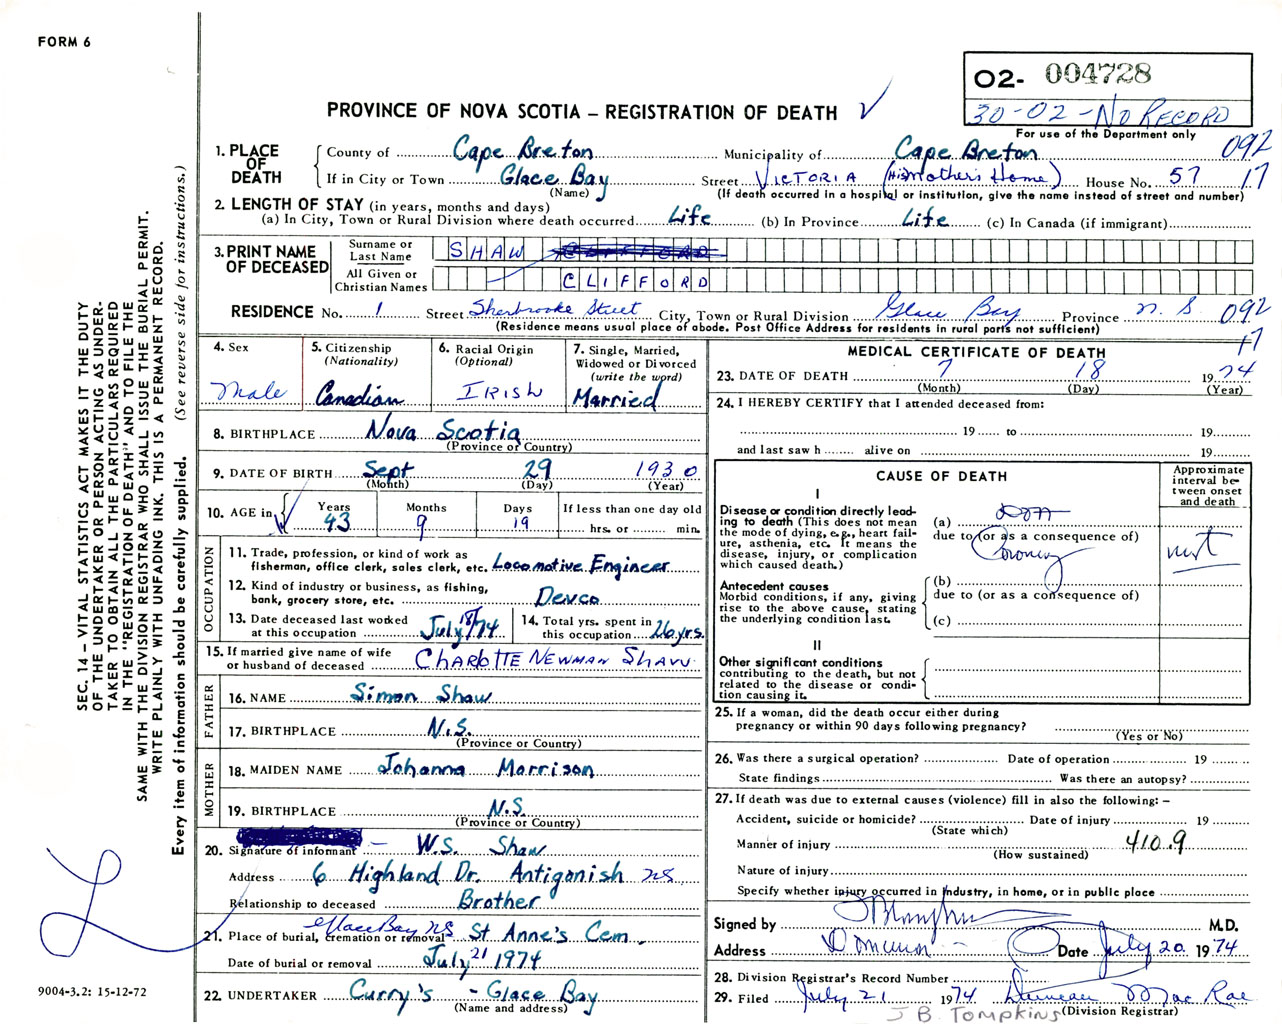 FORM 6
O2- 004728
30-02-No RECORD
For use of the Department only
PROVINCE OF NOVA SCOTIA – REGISTRATION OF DEATH
1. PLACE OF DEATH
County of Cape Breton Municipality of Cape Breton 092
If in City or Town Glace Bay Street VICTORIA (His Mother's Home) House No. 57 17
(Name) (If death occurred in a hospital or institution, give the name instead of street and number)
2. LENGTH OF STAY (in years, months and days)
(a) In City, Town or Rural Division where death occurred Life (b) In Province Life (c) In Canada (if immigrant)
3. PRINT NAME OF DECEASED
Surname or Last Name SHAW CLIFFORD
All Given or Christian Names CLIFFORD
RESIDENCE No. 1 Street Sherbrooke Street City, Town or Rural Division Glace Bay Province N.S. 092
(Residence means usual place of abode. Post Office Address for residents in rural parts not sufficient) 17
4. Sex Male
5. Citizenship (Nationality) Canadian
6. Racial Origin (Optional) IRISH
7. Single, Married, Widowed or Divorced (write the word) Married
8. BIRTHPLACE Nova Scotia
(Province or Country)
9. DATE OF BIRTH Sept 29 1930
(Month) (Day) (Year)
10. AGE in Years 43 Months 9 Days 19 If less than one day old hrs. or min.
OCCUPATION
11. Trade, profession, or kind of work as fisherman, office clerk, sales clerk, etc. Locomotive Engineer
12. Kind of industry or business, as fishing, bank, grocery store, etc. Devco
13. Date deceased last worked at this occupation July 18/74
14. Total yrs. spent in this occupation 26 yrs.
15. If married give name of wife or husband of deceased CHARLOTTE NEWMAN SHAW
FATHER
16. NAME Simon Shaw
17. BIRTHPLACE N.S.
(Province or Country)
MOTHER
18. MAIDEN NAME Johanna Morrison
19. BIRTHPLACE N.S.
(Province or Country)
20. Signature of informant – W.S. Shaw
Address 6 Highland Dr. Antigonish NS
Relationship to deceased Brother
21. Place of burial, cremation or removal Glace Bay NS St Anne's Cem.
Date of burial or removal July 21 1974
22. UNDERTAKER Curry's - Glace Bay
(Name and address)
MEDICAL CERTIFICATE OF DEATH
23. DATE OF DEATH 7 18 1974
(Month) (Day) (Year)
24. I HEREBY CERTIFY that I attended deceased from:
19 to 19
and last saw h alive on 19
CAUSE OF DEATH
Approximate interval between onset and death
I
Disease or condition directly leading to death (This does not mean the mode of dying, e.g., heart failure, asthenia, etc. It means the disease, injury, or complication which caused death.)
(a)
due to (or as a consequence of)
Coronary
Antecedent causes
Morbid conditions, if any, giving rise to the above cause, stating the underlying condition last.
(b)
due to (or as a consequence of)
(c)
II
Other significant conditions contributing to the death, but not related to the disease or condition causing it.
25. If a woman, did the death occur either during pregnancy or within 90 days following pregnancy?
(Yes or No)
26. Was there a surgical operation? Date of operation 19
State findings Was there an autopsy?
27. If death was due to external causes (violence) fill in also the following: –
Accident, suicide or homicide? Date of injury 19
(State which)
Manner of injury 410.9
(How sustained)
Nature of injury
Specify whether injury occurred in industry, in home, or in public place
Signed by M.D.
Address Dominion Date July 20 1974
28. Division Registrar's Record Number
29. Filed July 21 1974 Duncan MacRae
(Division Registrar)
J B. TOMPKINS
SEC. 14 – VITAL STATISTICS ACT MAKES IT THE DUTY
OF THE UNDERTAKER OR PERSON ACTING AS UNDER-
TAKER TO OBTAIN ALL THE PARTICULARS REQUIRED
IN THE "REGISTRATION OF DEATH" AND TO FILE THE
SAME WITH THE DIVISION REGISTRAR WHO SHALL ISSUE THE BURIAL PERMIT.
WRITE PLAINLY WITH UNFADING INK. THIS IS A PERMANENT RECORD.
Every item of information should be carefully supplied. (See reverse side for instructions.)
9004-3.2: 15-12-72